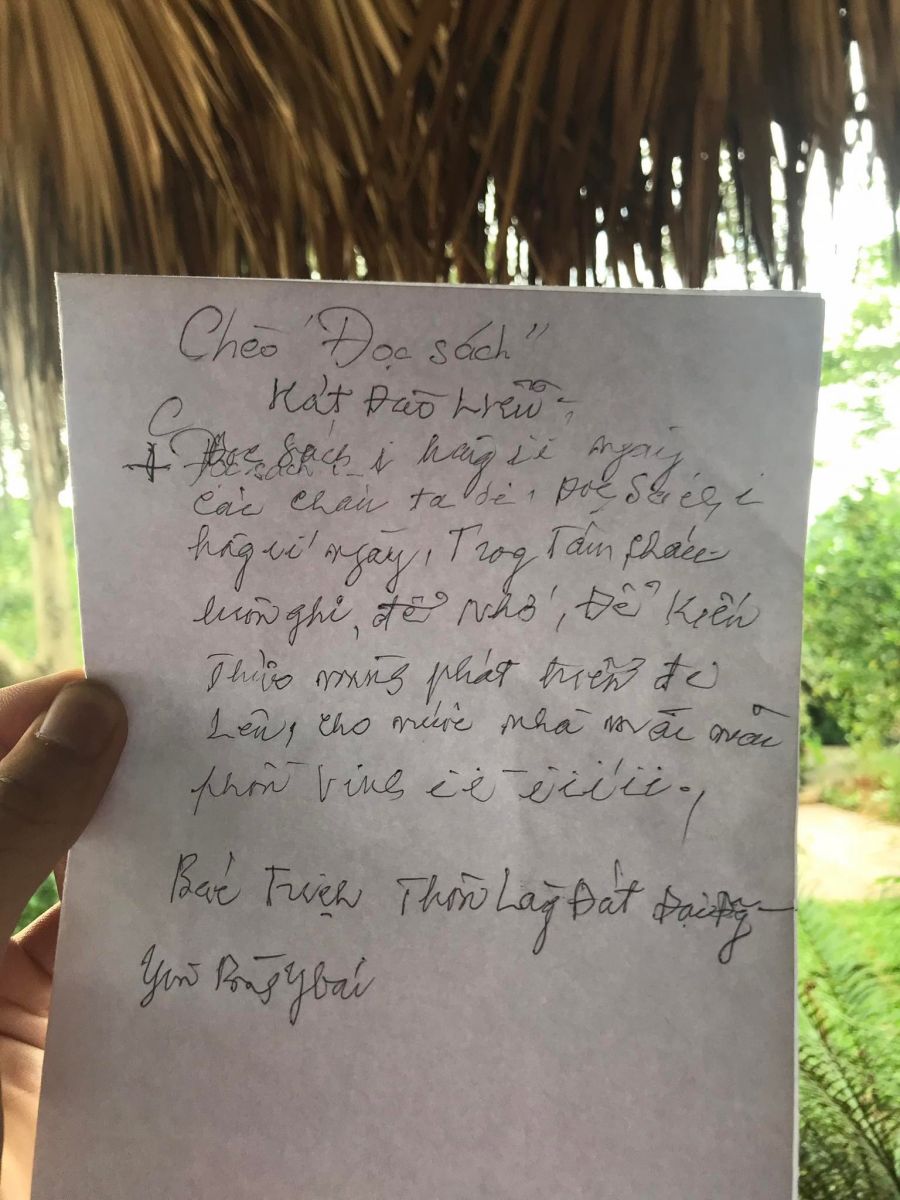 Chèo "Đọc sách"
Hát Đào Liễu
Đọc sách i hàg i i ngày
các cháu ta
Đọc Sách i
hàg i i ngày, Trog Tâm cháu
luôn ghi, để Nhớ, Để Kiến
Thức phát triển đi
Lên, cho nước nhà mãi mãi
phồn Vinh i i i i i i i
Bác Truyện Thôn Làg Đát Đại Đg
Yên Bình Ybái